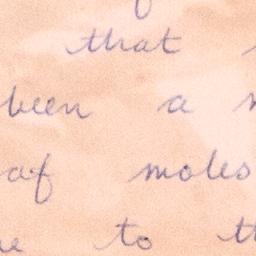 that
been a
af moles
to th